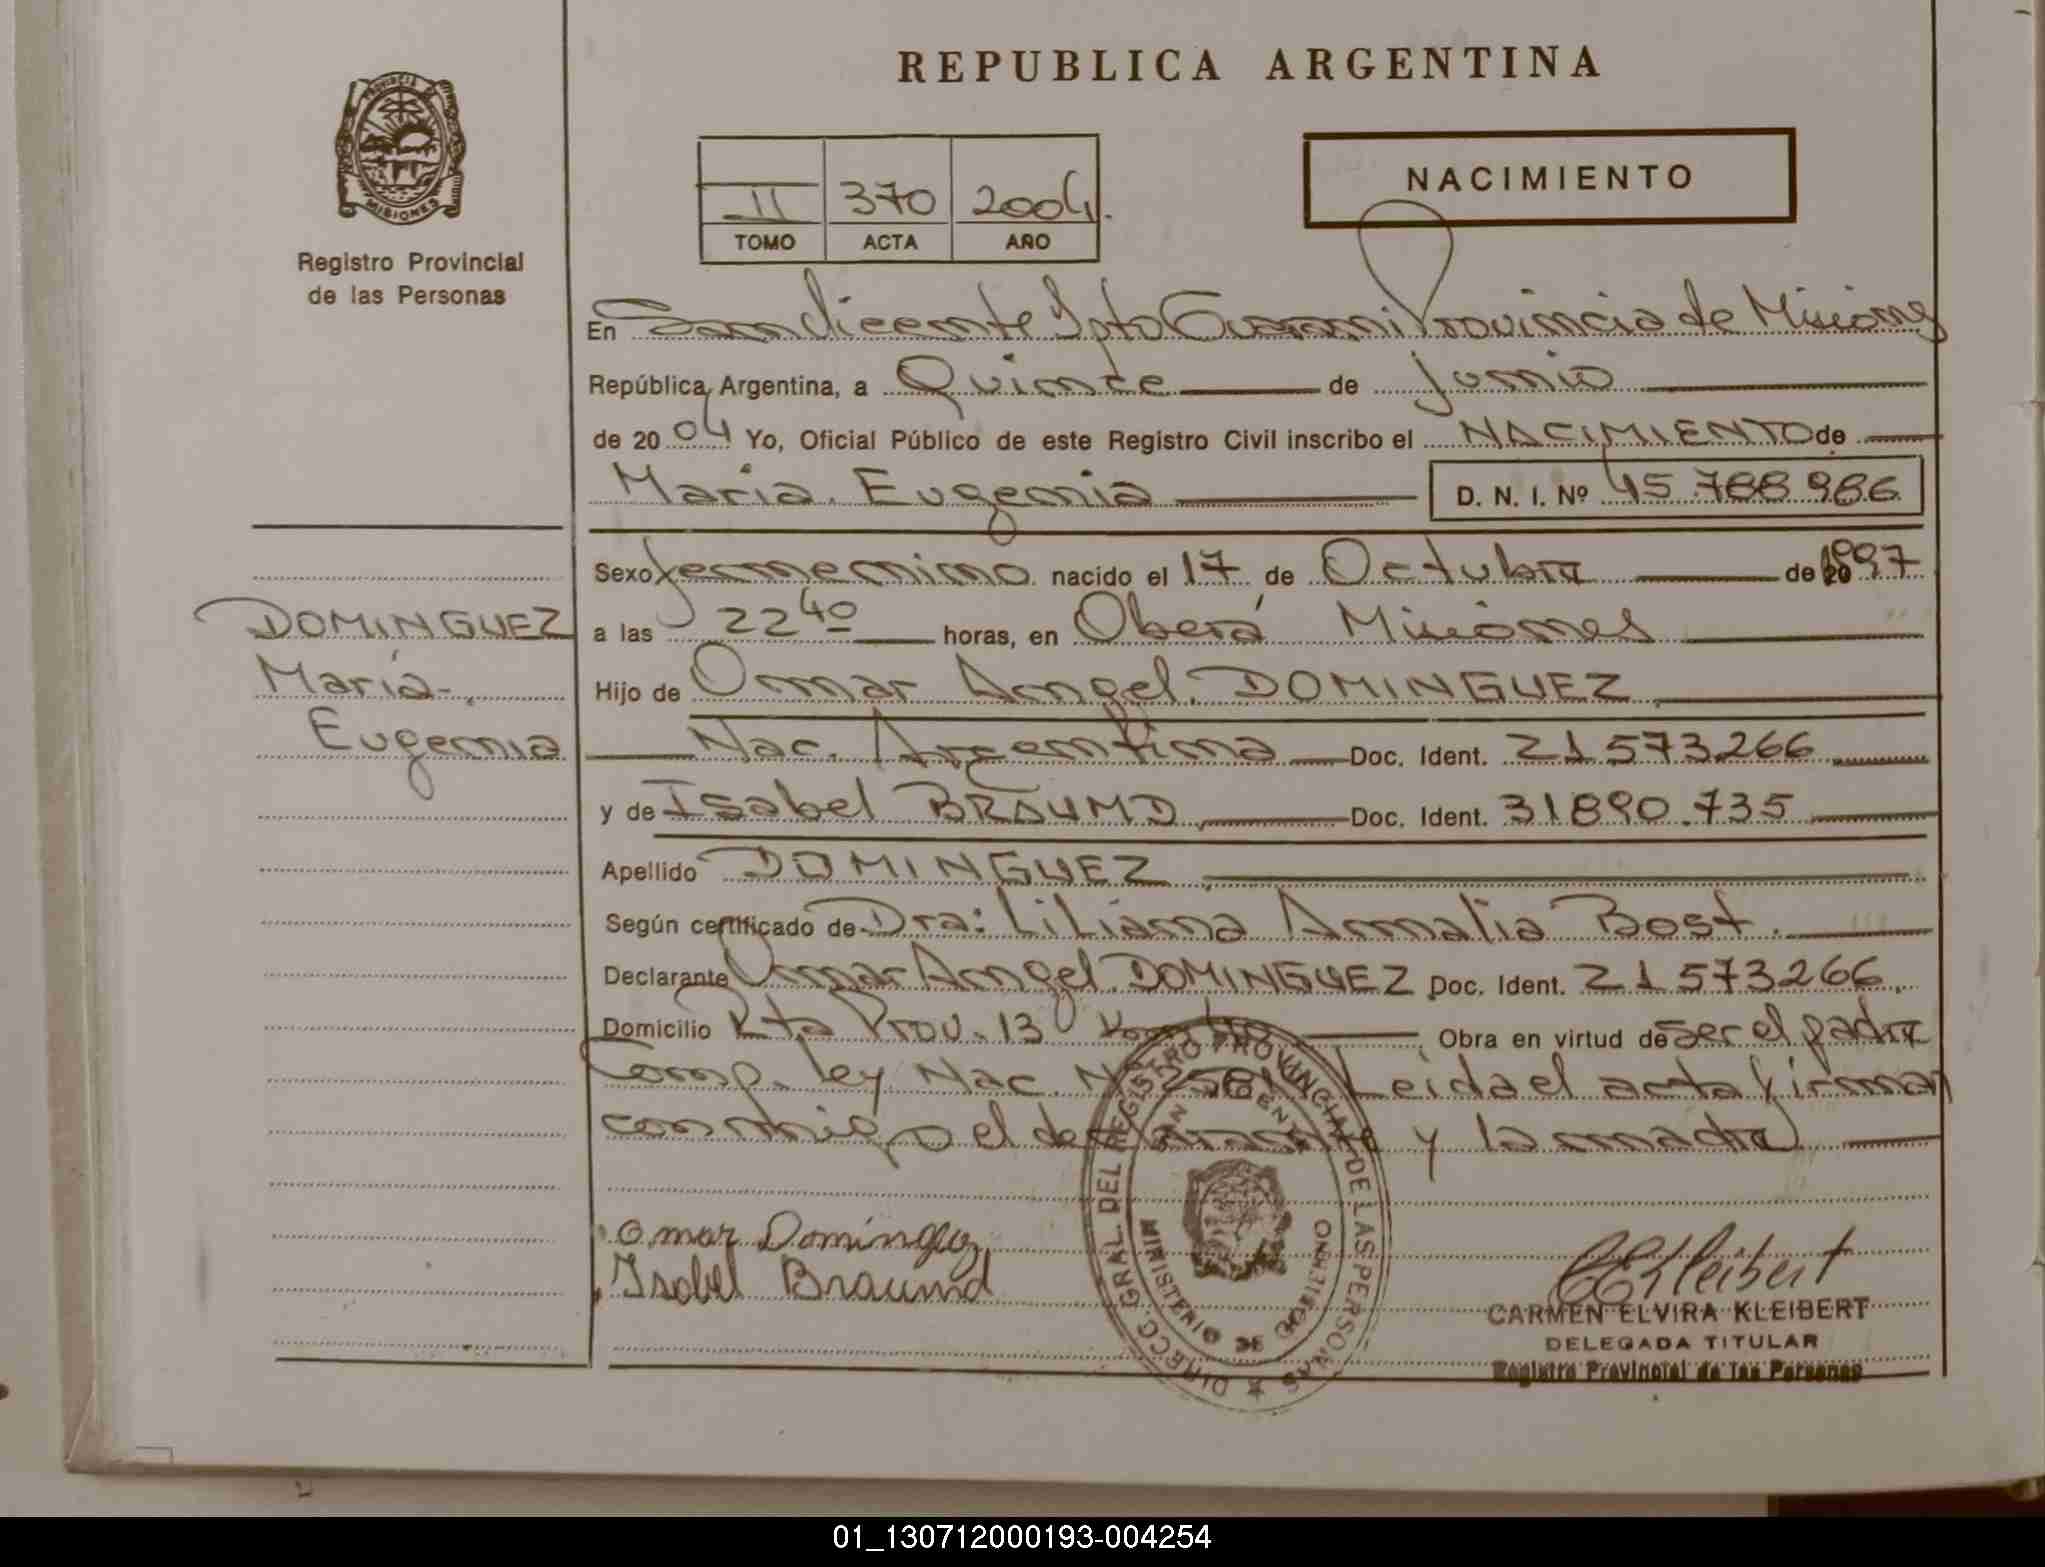 REPUBLICA ARGENTINA
PROVINCIA DE
MISIONES
Registro Provincial
de las Personas
II 370 2004.
TOMO ACTA AÑO
NACIMIENTO
En San Vicente Dpto Guaraní Provincia de Misiones
República Argentina, a Quince de Junio
de 20 04 Yo, Oficial Público de este Registro Civil inscribo el NACIMIENTO de
Maria Eugenia D. N. I. Nº 45.788.986
Sexo femenino nacido el 17 de Octubre de 1997
DOMINGUEZ
María
Eugenia
a las 22 40 horas, en Oberá Misiones
Hijo de Omar Angel DOMINGUEZ
Nac. Argentina Doc. Ident. 21573266
y de Isabel BRAUND Doc. Ident. 31890.735
Apellido DOMINGUEZ
Según certificado de Dra: Liliana Amalia Bost.
Declarante Omar Angel DOMINGUEZ Doc. Ident. 21573266
Domicilio Rta Prov. 13 Obra en virtud de ser el padre
Comp. ley Nac. Nº Leida el acta firman
conmigo el declarante y la madre
Omar Dominguez
Isabel Braund
DIRECC. GRAL. DEL REGISTRO PROVINCIAL DE LAS PERSONAS
SAN VICENTE
MINISTERIO DE GOBIERNO
CEKleibert
CARMEN ELVIRA KLEIBERT
DELEGADA TITULAR
Registro Provincial de las Personas
01_130712000193-004254